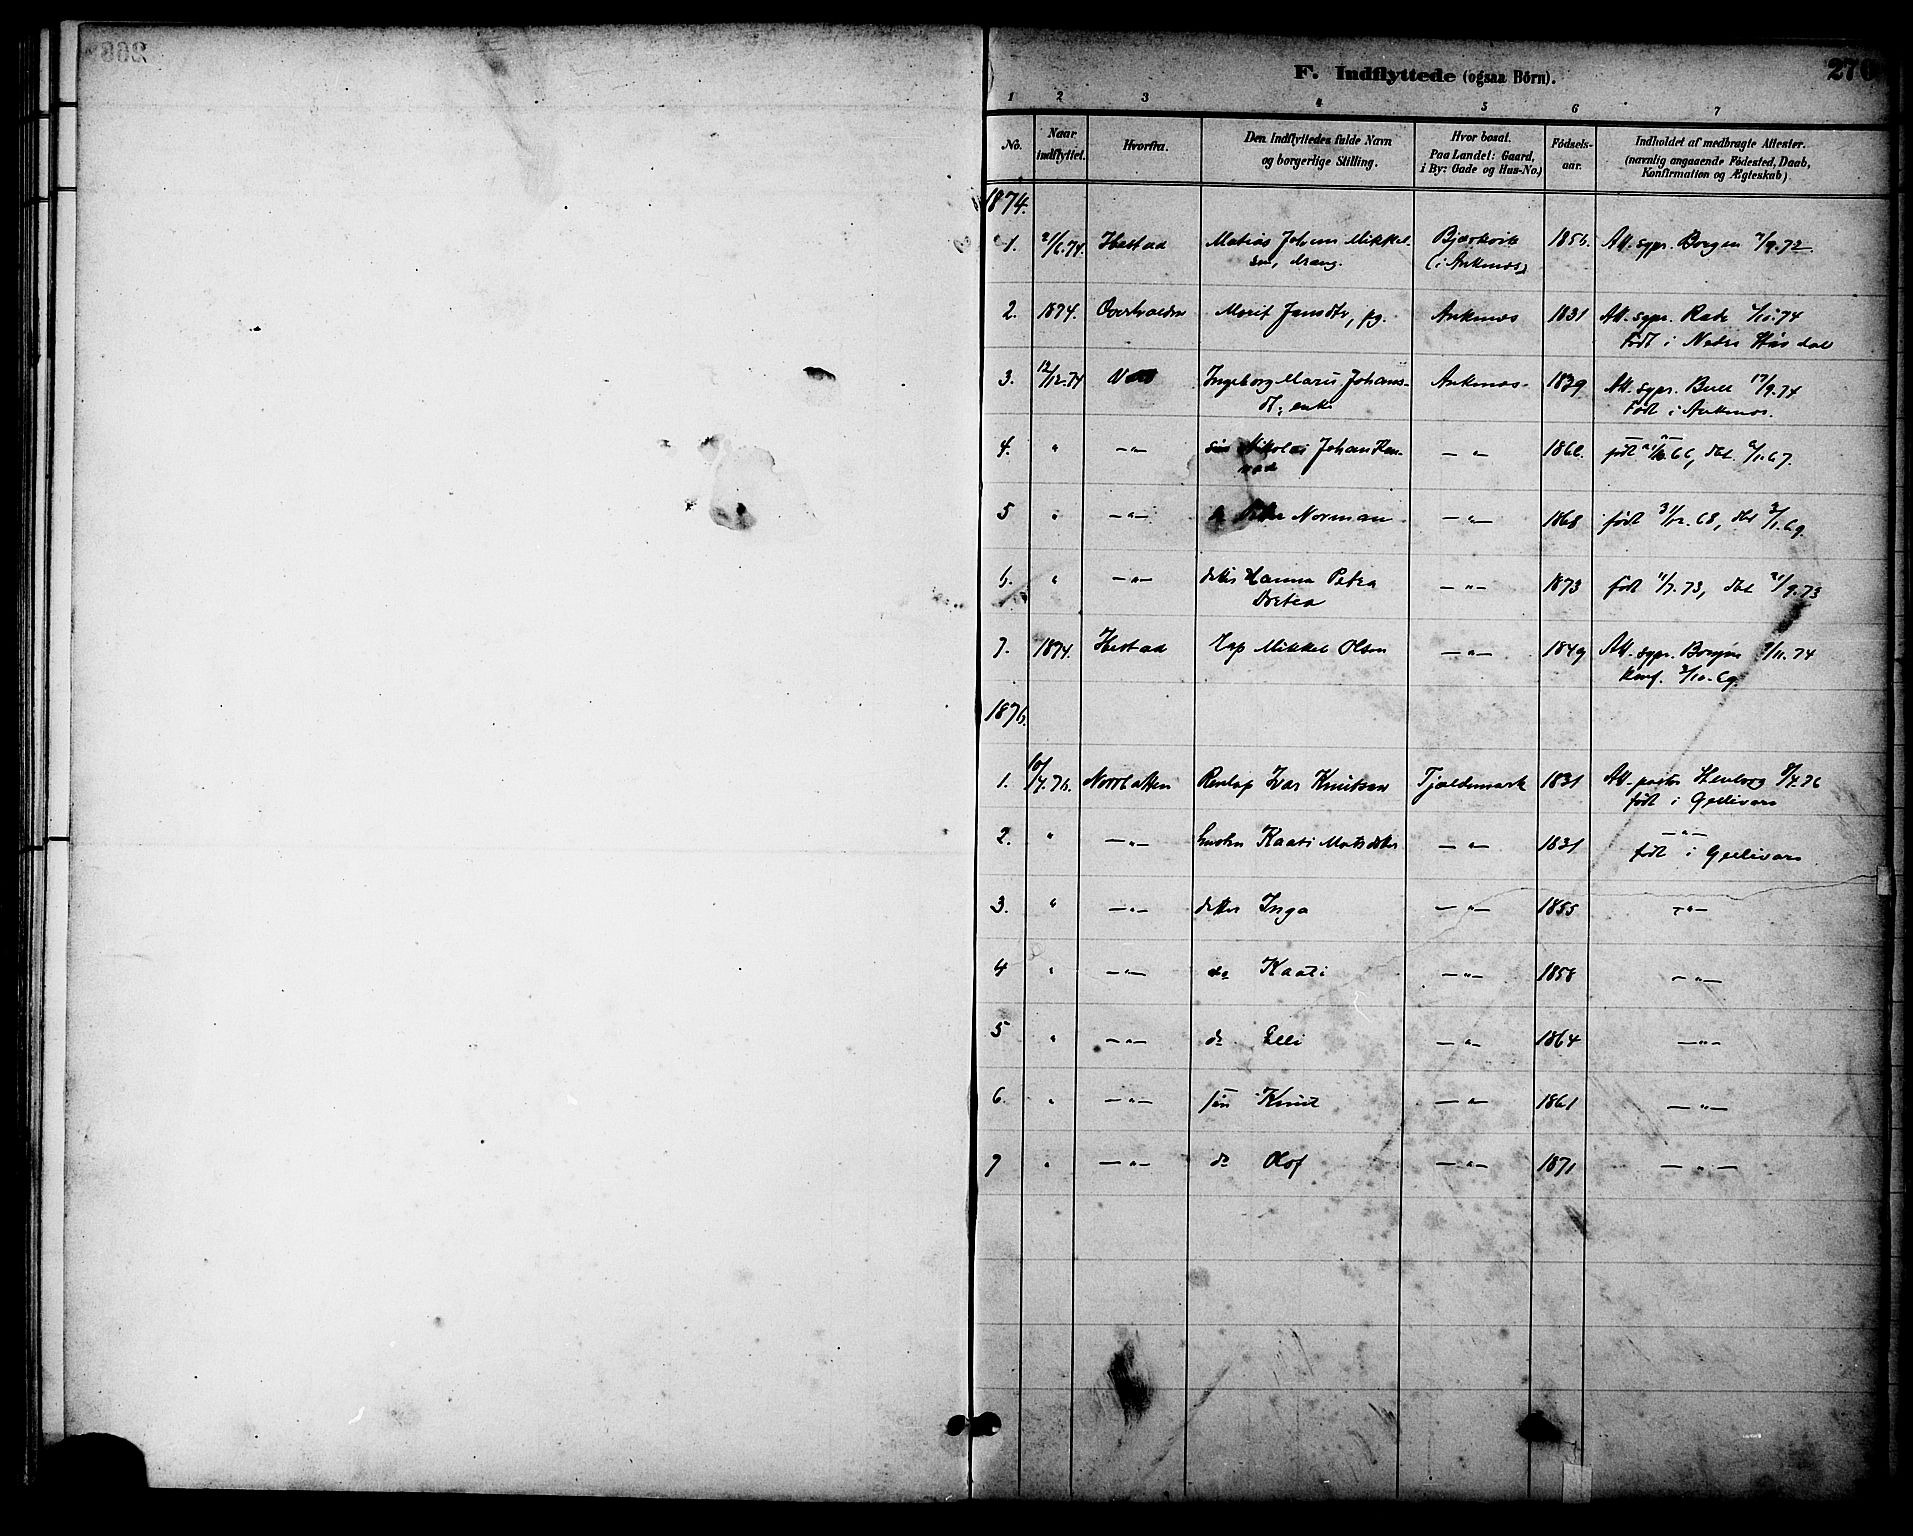 270
F. Indflyttede (ogsaa Börn).
1 2 3 4 5 6 7
No. Naar indflyttet. Hvorfra. Den Indflyttedes fulde Navn og borgerlige Stilling. Hvor bosat. Paa Landet: Gaard, i By: Gade og Hus-No.) Fødsels-aar. Indholdet af medbragte Attester. (navnlig angaaende Fødested, Daab, Konfirmation og Ægteskab).
1874.
1. 2/6.74. Ibestad Matias Johan Mikkel- Bjerkvik Att. sgpr. Borgen 9.72
sen, dreng. (i Ankenes)
2. 1874. Overhalden Marit Jonsdtr, pg. Ankenes 1831 Att. sgpr. Rode 10.74
Født i Nedre
3. 12/12.74 Ingeborg Marie Johans- Ankenes 1839 Att. sgpr. Bull 17/9.74
dt., enke Født i Ankenes.
4. " —"— søn Nikolai Johan —"— 1866. født 66, dbt. 1.67.
5 " —"— Norman —"— 1868 født 31/12.68, dbt 1.69.
6. " —"— datter Hanna Petra —"— 1873 født 11/7.73, dbt 21/9.73
Dortea
7. 1874. Ibestad Lap Mikkel Olsen —"— 1849 Att. sgpr. Borgen 11.74
konf. 10.69.
1876.
1. 10/4.76. Norrbotten Renlap Ivar Knutsen Tjældemark 1831 Att. pastor 4.76
født i Gellivara
2. " —"— hustru Kaati Matsdatter —"— 1831 —"—
født i Gellivara
3. " —"— datter Inga —"— 1855 —"—
4 " —"— do Kaati —"— 1858 —"—
5 " —"— do Elli —"— 1864 —"—
6. " —"— søn Knut —"— 1861 —"—
7 " —"— do Olof —"— 1871 —"—